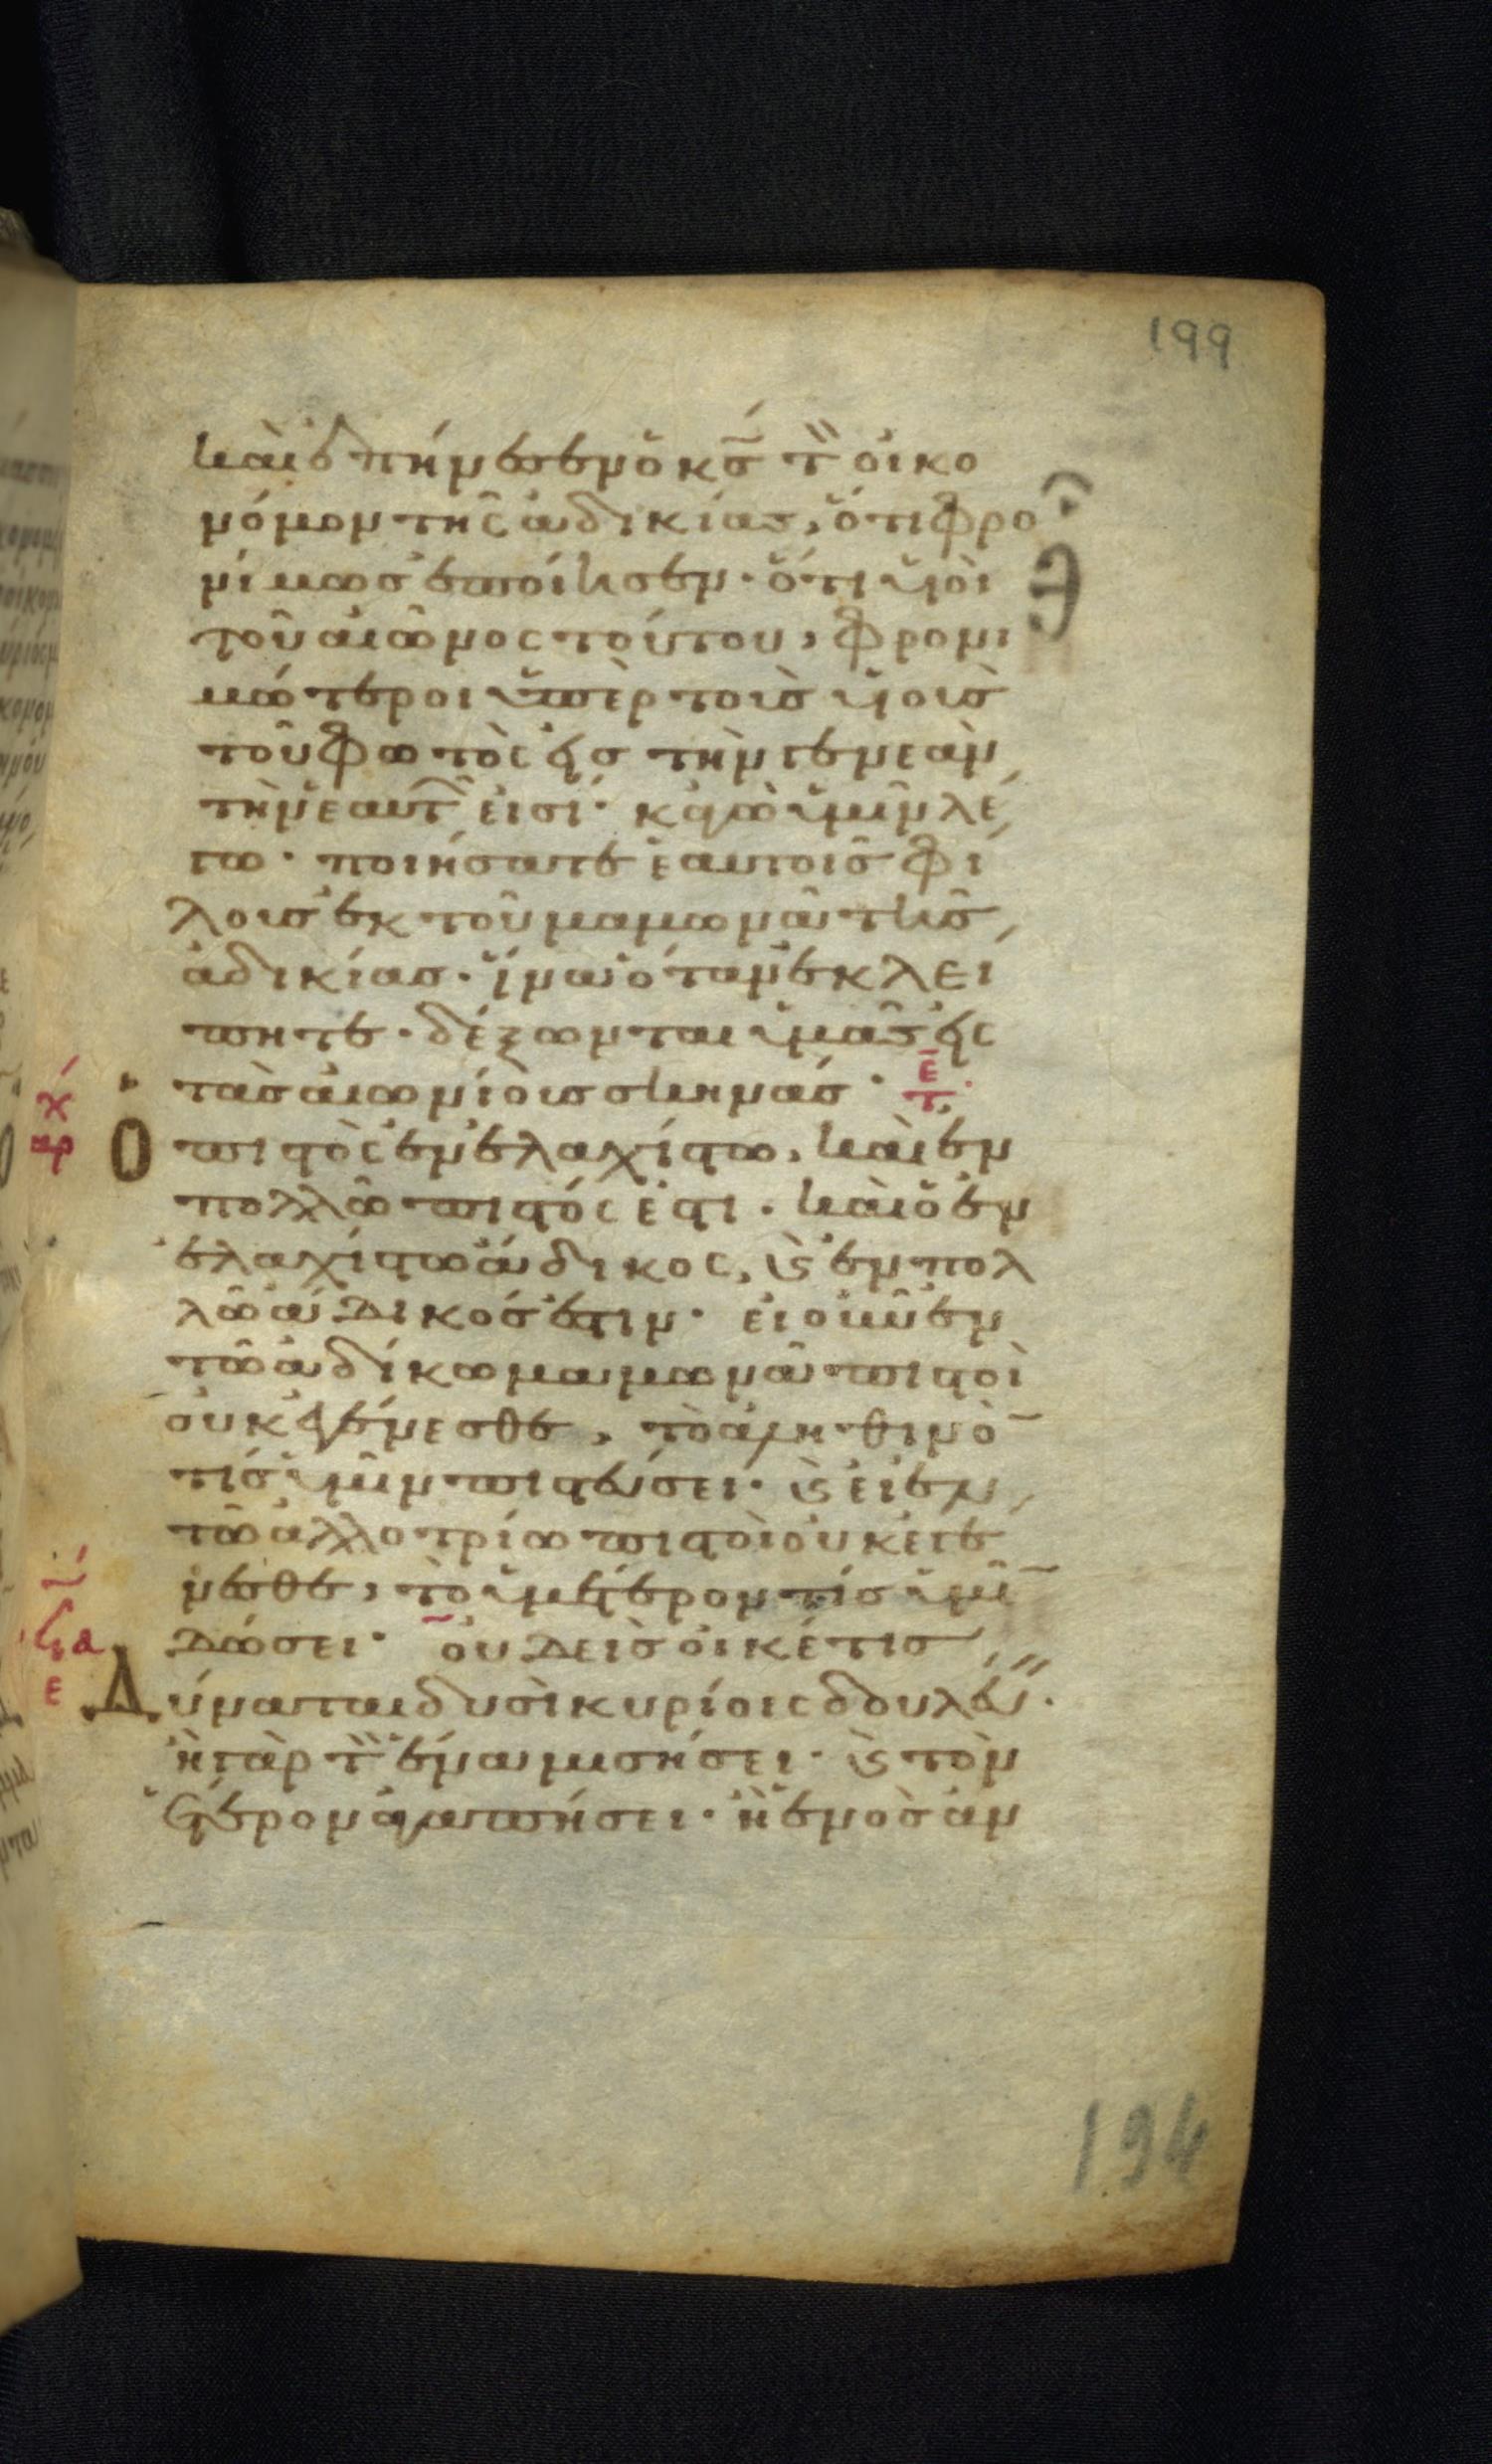 199
καὶ ἐπήνεσεν ὁ κς̅ τὸν οἰκο
νόμον τῆς ἀδικίας, ὅτι φρο
νίμως ἐποίησεν· ὅτι υἱοὶ
τοῦ αἰῶνος τούτου, φρονι
μώτεροι ὑπὲρ τοὺς υἱοὺς
τοῦ φωτὸς εἰς τὴν γενεὰν
τὴν ἑαυτῶν εἰσί· κἀγὼ ὑμῖν λέ
γω· ποιήσατε ἑαυτοῖς φί
λους ἐκ τοῦ μαμωνᾶ τῆς
ἀδικίας· ἵνα ὅταν ἐκλεί
πητε· δέξωνται ὑμᾶς εἰς
τὰς αἰωνίους σκηνάς· ε̅ τ
Ὁ πιστὸς ἐν ἐλαχίστω, καὶ ἐν
πολλῶ πιστός ἐστι· καὶ ὁ ἐν
ἐλαχίστω ἄδικος, ϗ ἐν πολ
λῶ ἄδικός ἐστιν· εἰ οὖν ἐν
τῶ ἀδίκω μαμωνᾶ πιστοὶ
οὐκ ἐγένεσθε, τὸ ἀληθινὸ̅
τίς ὑμῖν πιστεύσει· ϗ εἰ ἐν
τῶ ἀλλοτρίω πιστοὶ οὐκ ἐγέ
νεσθε, τὸ ὑμέτερον τίς ὑμῖ̅
δώσει· οὐδεὶς οἰκέτης
Δύναται δυσὶ κυρίοις δουλεύειν·
ἢ γὰρ τὸν ἕνα μισήσει· ϗ τὸν
ἕτερον ἀγαπήσει· ἢ ἑνὸς ἀν
194